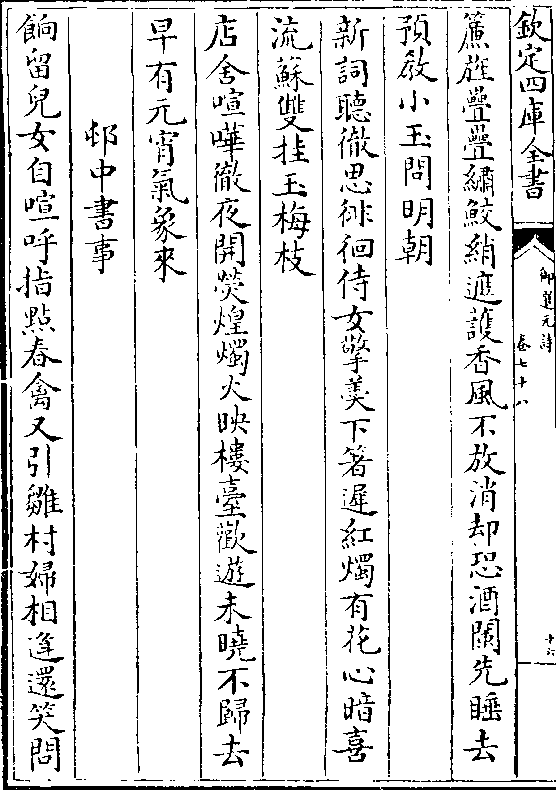 欽定四庫全書
御選元詩
卷七十八
十六
簾旌疊疊繡鮫綃遮護香風不放消却恐酒闌先睡去
預敎小玉問明朝
新詞聽徹思徘徊侍女擎羮下箸遲紅燭有花心暗喜
流蘇雙挂玉梅枝
店舍喧嘩徹夜開熒煌燭火映樓臺歡遊未曉不歸去
早有元宵氣象來
邨中書事
餉留兒女自喧呼指點春禽又引雛村婦相逢還笑問